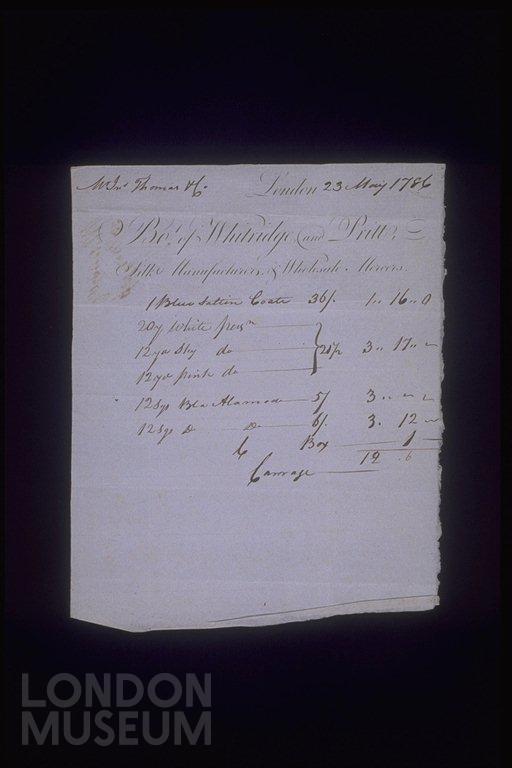 Mr Jno Thomas & Co. London 23 May 1786
Bot. of Whitridge and Pritt,
Silk Manufacturers, & Wholesale Mercers.
1 Blue Sattin Coate 36/. 1.. 16.. 0
20y White
12yd Sky do 21/2 3.. 17..
12yd pink do
12 Bla Alamode 5/ 3..
12 6/. 3. 12
Box 1
Carriage 12 .6
LONDON
MUSEUM